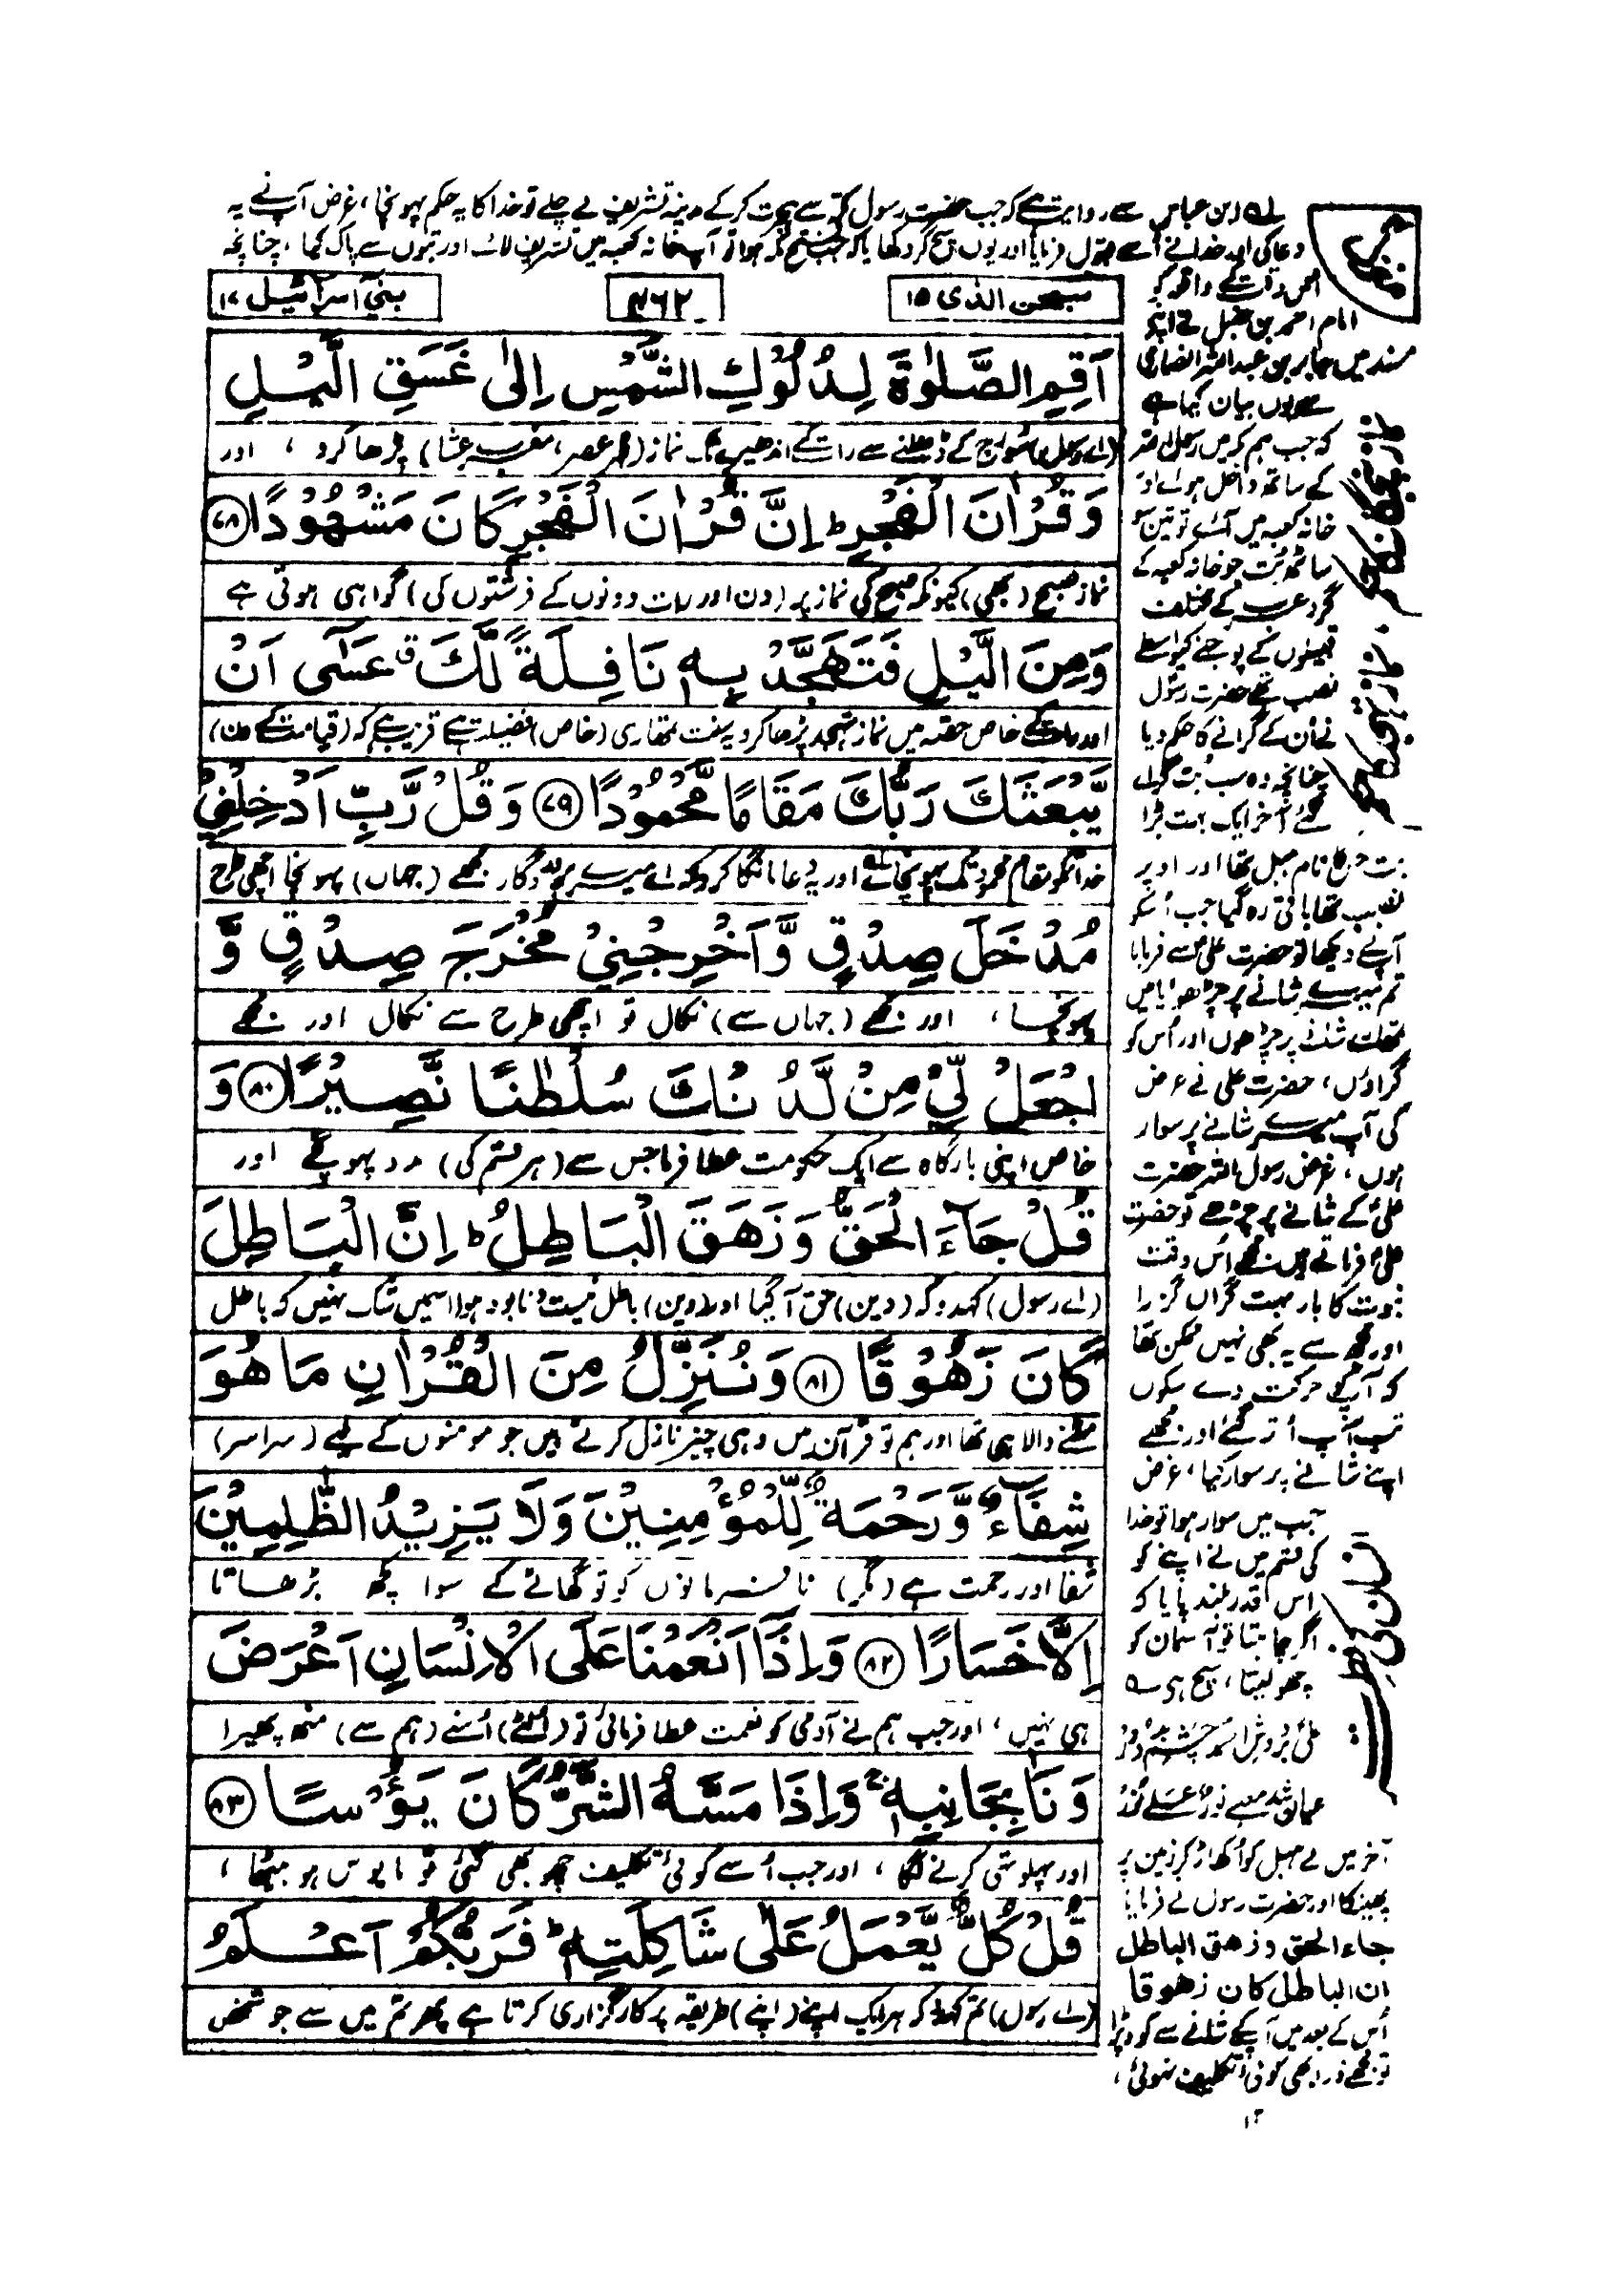 لے ابن عباس سے روایت ہے کہ جب حضرت رسول مکہ سے ہجرت کر کے مدینہ تشریف لے چلے تو خدا کا یہ حکم پہونچا، غرض آپ نے یہ
دعا کی اور خدا نے اُسے قبول فرمایا اور یوں سچ کر دکھایا کہ جب فتح مکہ ہوا تو آپ خانہ کعبہ میں تشریف لائے اور بتوں سے پاک کیا، چنانچہ
سبحٰن الذی ۱۵
۴۶۲
بنی اسرآئیل ۱۷
اَقِمِ الصَّلٰوةَ لِدُلُوْكِ الشَّمْسِ اِلٰى غَسَقِ الَّيْلِ
(اے رسول) سورج کے ڈھلنے سے رات کے اندھیرے تک نماز (ظہر عصر، مغرب عشا) پڑھا کرو، اور
وَقُرْاٰنَ الْفَجْرِ ؕ اِنَّ قُرْاٰنَ الْفَجْرِ كَانَ مَشْهُوْدًا ۷۸
نماز صبح (بھی) کیونکہ صبح کی نماز پر (دن اور رات دونوں کے فرشتوں کی) گواہی ہوتی ہے
وَمِنَ الَّيْلِ فَتَهَجَّدْ بِهٖ نَافِلَةً لَّكَ ق عَسٰٓى اَنْ
اور رات کے خاص حصّہ میں نماز تہجد پڑھا کرو یہ سنت تمھاری (خاص) فضیلت ہے قریب ہے کہ (قیامت کے دن)
يَّبْعَثَكَ رَبُّكَ مَقَامًا مَّحْمُوْدًا ۷۹ وَقُلْ رَّبِّ اَدْخِلْنِيْ
خدا تمکو مقام محمود تک پہونچائے اور یہ دعا مانگا کرو کہ اے میرے پروردگار مجھے (جہاں) پہونچا اچھی طرح
مُدْخَلَ صِدْقٍ وَّاَخْرِجْنِيْ مُخْرَجَ صِدْقٍ وَّ
پہونچا، اور مجھے (جہاں سے) نکال تو اچھی طرح سے نکال اور مجھے
اجْعَلْ لِّيْ مِنْ لَّدُنْكَ سُلْطٰنًا نَّصِيْرًا ۸۰ وَ
خاص اپنی بارگاہ سے ایک حکومت عطا فرما جس سے (ہر قسم کی) مدد پہونچے اور
قُلْ جَآءَ الْحَقُّ وَزَهَقَ الْبَاطِلُ ؕ اِنَّ الْبَاطِلَ
(اے رسول) کہدو کہ (دین) حق آ گیا اور (دین) باطل نیست و نابود ہوا اسمیں شک نہیں کہ باطل
كَانَ زَهُوْقًا ۸۱ وَنُنَزِّلُ مِنَ الْقُرْاٰنِ مَا هُوَ
مٹنے والا ہی تھا اور ہم تو قرآن میں وہی چیز نازل کرتے ہیں جو مومنوں کے لیے (سراسر)
شِفَآءٌ وَّرَحْمَةٌ لِّلْمُؤْمِنِيْنَ وَلَا يَزِيْدُ الظّٰلِمِيْنَ
شفا اور رحمت ہے (مگر) نافرمانوں کو تو گھاٹے کے سوا کچھ بڑھاتا
اِلَّا خَسَارًا ۸۲ وَاِذَآ اَنْعَمْنَا عَلَى الْاِنْسَانِ اَعْرَضَ
ہی نہیں، اور جب ہم نے آدمی کو نعمت عطا فرمائی تو (اُلٹے) اُسنے (ہم سے) منھ پھیرا
وَنَاٰ بِجَانِبِهٖ ج وَاِذَا مَسَّهُ الشَّرُّ كَانَ يَـُٔوْسًا ۸۳
اور پہلو تہی کرنے لگا، اور جب اُسے کوئی تکلیف چھو بھی گئی تو مایوس ہو بیٹھا،
قُلْ كُلٌّ يَّعْمَلُ عَلٰى شَاكِلَتِهٖ ؕ فَرَبُّكُمْ اَعْلَمُ
(اے رسول) تم کہدو کہ ہر ایک اپنے (اپنے) طریقہ پر کارگزاری کرتا ہے پھر تم میں سے جو شخص
اس وقت کے واقعہ کو
امام احمد بن حنبل نے اپنی
مسند میں جابر بن عبداللہ انصاری
سے یوں بیان کیا ہے
کہ جب ہم مکہ میں رسول اللہ
کے ساتھ داخل ہوئے اور
خانہ کعبہ میں آئے تو تین سو
ساٹھ بُت جو خانہ کعبہ کے
گرد عرب کے مختلف
قبیلوں کے پوجنے کیواسطے
نصب تھے حضرت رسول
نے اُن کے گرانے کا حکم دیا
چنانچہ وہ سب بُت گرائے
گئے آخر ایک بہت بڑا
بت جس کا نام ہبل تھا اور اوپر
نصب تھا باقی رہ گیا جب اُسکو
آپ نے دیکھا تو حضرت علی سے فرمایا
تم میرے شانے پر چڑھو یا میں
تمھارے شانے پر چڑھوں اور اُس کو
گراؤں، حضرت علی نے عرض
کی آپ میرے شانے پر سوار
ہوں، غرض رسول اللہ حضرت
علی کے شانے پر چڑھے تو حضرت
علی فرماتے ہیں مجھے اُس وقت
نبوت کا بار بہت گراں گزرا
اور مجھ سے یہ بھی نہیں ممکن تھا
کہ آپ کو حرکت دے سکوں
تب آپ اُتر گئے اور مجھے
اپنے شانے پر سوار کیا، غرض
جب میں سوار ہوا تو خدا
کی قسم میں نے اپنے کو
اس قدر بلند پایا کہ
اگر چاہتا تو آسمان کو
چھو لیتا، سچ ہی ہے
آخر میں نے ہبل کو اُکھاڑ کر زمین پر
پھینکا اور حضرت رسول نے فرمایا
جاء الحق و زھق الباطل
ان الباطل کان زھوقا
اُس کے بعد میں آپ کے شانے سے کود پڑا
تو مجھے ذرا بھی کوئی تکلیف نہوئی،
۱۲